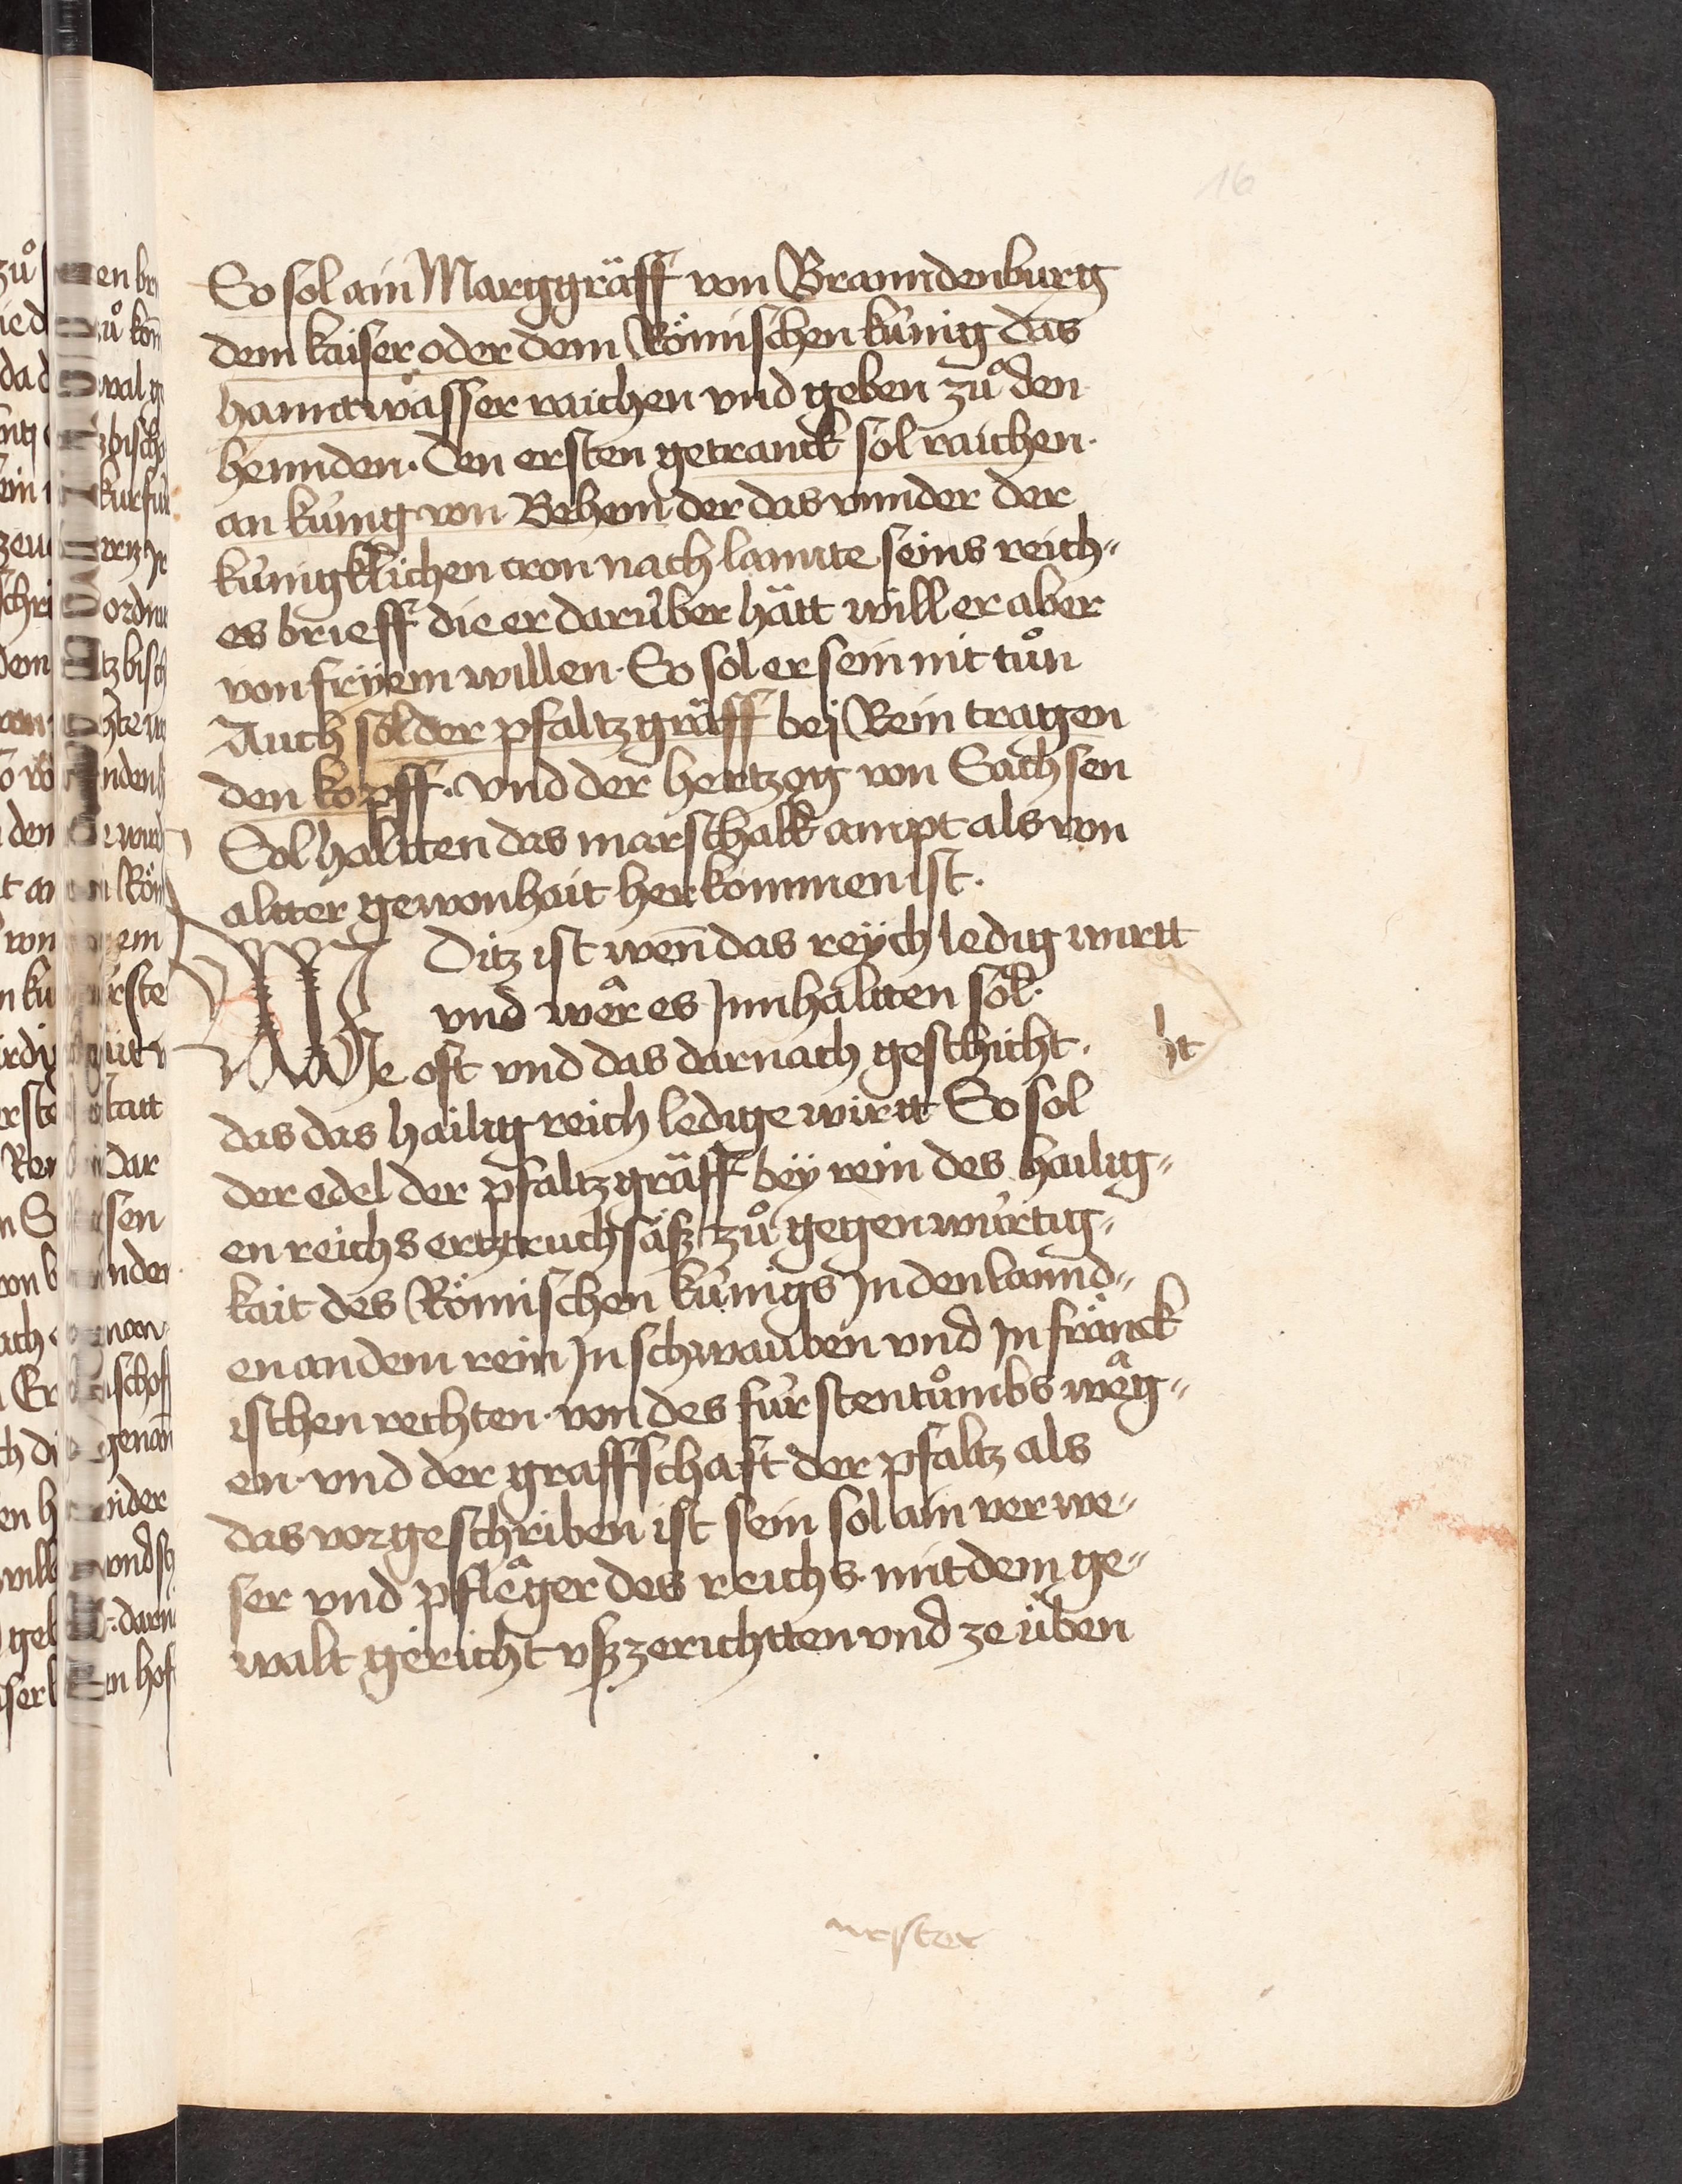 16
So sol ain Marggräff von Branndenburg
dem kaiser oder dem Römischen kúnig das
hanntwasser raichen vnd geben zuͦ den
hennden · Den ersten getranck sol raichen ·
an kúnig von Behem der das vnnder der
kúnigklichen cron nach lautte seins reich„
es brieff die er darúber hätt will er aber
von frÿem willen · So sol er sein nit tuͦn
Auch sol der pfaltzgräff bej Rein tragen
den kopff · vnd der hertzog von Sachsen
Sol haltten das marschalk ampt als von
altter gewonhait herkommen ist ·
Ditz ist weñ das reÿch ledig wirtt
vnd wer es Innhaltten sol ·
WIe oft vnd das darnach geschicht ·
ht
das das hailig reich ledige wirtt So sol
der edel der pfaltzgräff beÿ rein des hailig„
en reichs ertztruchsäß zuͦ gegenwúrtig„
kait des Römischen kúnigs In den lannd„
en an dem rein In schwauben vnd In fränck
ischen rechten · von des fúrstentuͦmbs weͣg„
en · vnd der graffschaft der pfaltz als
das vorgeschriben ist sein sol ain verwe„
ser vnd pfleͣger des reichs · mit dem ge„
walt gericht vßzerichtten vnd ze úben